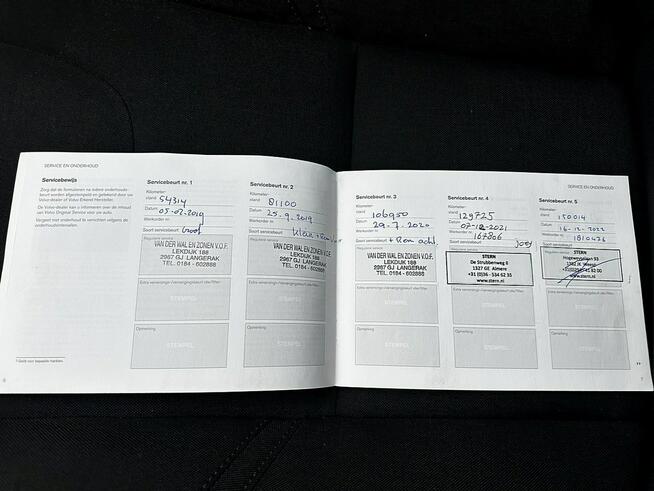 SERVICE EN ONDERHOUD
Servicebewijs
Zorg dat de formulieren na iedere onderhouds-
beurt worden afgestempeld en getekend door uw
Volvo-dealer of Volvo Erkend Hersteller.
De Volvo-dealer kan u informeren over de inhoud
van Volvo Original Service voor uw auto.
Vergeet niet onderhoud te verrichten volgens de
onderhoudsintervallen.
Servicebeurt nr. 1
Kilometer-
stand 54314
Datum 05-02-2019
Werkorder nr.
Soort servicebeurt Groot
Reguliere service
VAN DER WAL EN ZONEN V.O.F.
LEKDIJK 188
2967 GJ LANGERAK
TEL. 0184 - 602888
STEMPEL
Opmerking
STEMPEL
Servicebeurt nr. 2
Kilometer-
stand 81100
Datum 25-9-2019
Werkorder nr.
Soort servicebeurt Klein +
Reguliere service
VAN DER WAL EN ZONEN V.O.F.
LEKDIJK 188
2967 GJ LANGERAK
TEL. 0184 - 602888
STEMPEL
Opmerking
STEMPEL
Servicebeurt nr. 3
Kilometer-
stand 106950
Datum 29-7-2020
Werkorder nr.
Soort servicebeurt
Reguliere service
VAN DER WAL EN ZONEN V.O.F.
LEKDIJK 188
2967 GJ LANGERAK
TEL. 0184 - 602888
STEMPEL
Opmerking
STEMPEL
Servicebeurt nr. 4
Kilometer-
stand 129725
Datum 07-12-2021
Werkorder nr. 167806
Soort servicebeurt joey
Reguliere service
STERN
De Strubbenweg 8
1327 GE Almere
+31 (0)36 - 534 62 35
www.stern.nl
STEMPEL
Opmerking
STEMPEL
SERVICE EN ONDERHOUD
Servicebeurt nr. 5
Kilometer-
stand 150014
Datum 16-12-2022
Werkorder nr. 1810476
Soort servicebeurt
STERN
www.stern.nl
STEMPEL
Opmerking
STEMPEL
6
7